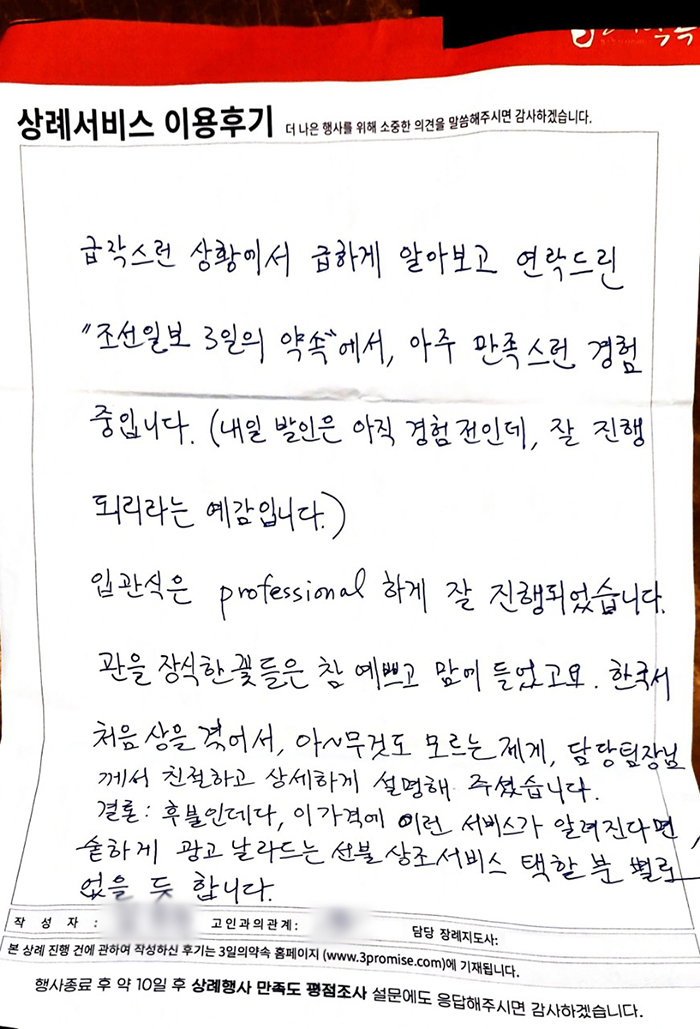 상례서비스 이용후기 더 나은 행사를 위해 소중한 의견을 말씀해주시면 감사하겠습니다.
급작스런 상황에서 급하게 알아보고 연락드린
"조선일보 3일의 약속"에서, 아주 만족스런 경험
중입니다. (내일 발인은 아직 경험 전인데, 잘 진행
되리라는 예감입니다.)
입관식은 professional 하게 잘 진행되었습니다.
관을 장식한 꽃들은 참 예쁘고 맘에 들었고요. 한국서
처음 상을 겪어서, 아~무것도 모르는 제게, 담당팀장님
께서 친절하고 상세하게 설명해 주셨습니다.
결론: 후불인데다, 이가격에 이런 서비스가 알려진다면,
숱하게 광고 날라드는 선불 상조서비스 택할 분 별로
없을 듯 합니다.
작 성 자 : 고인과의관계: 담당 장례지도사:
본 상례 진행 건에 관하여 작성하신 후기는 3일의약속 홈페이지 (www.3promise.com)에 기재됩니다.
행사종료 후 약 10일 후 상례행사 만족도 평점조사 설문에도 응답해주시면 감사하겠습니다.